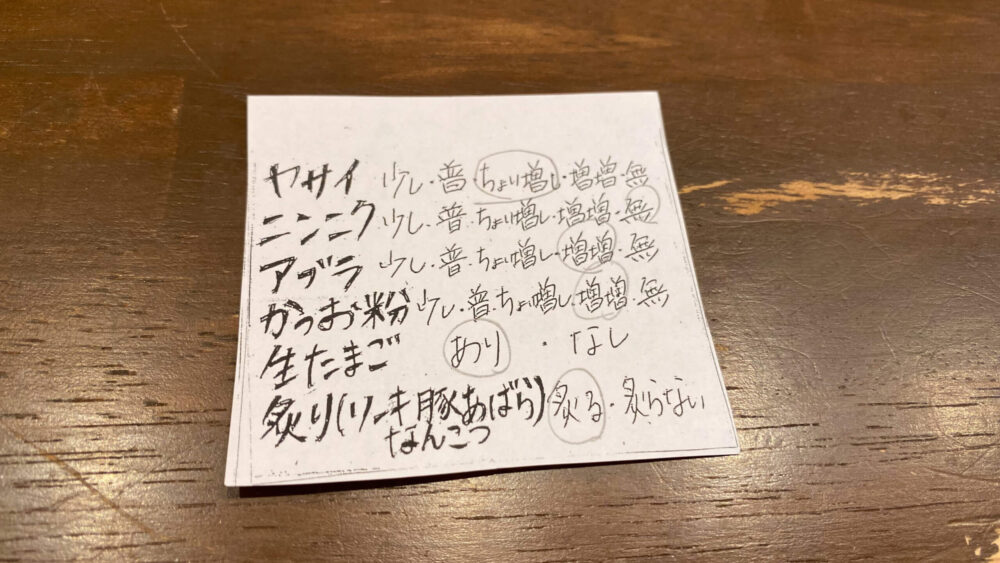 ヤサイ 少し・普・ちょい増し・増増・無
ニンニク 少し・普・ちょい増し・増増・無
アブラ 少し・普・ちょい増し・増増・無
かつお粉 少し・普・ちょい増し・増増・無
生たまご あり・なし
炙り(ソーキ豚あばら) 炙る・炙らない
なんこつ